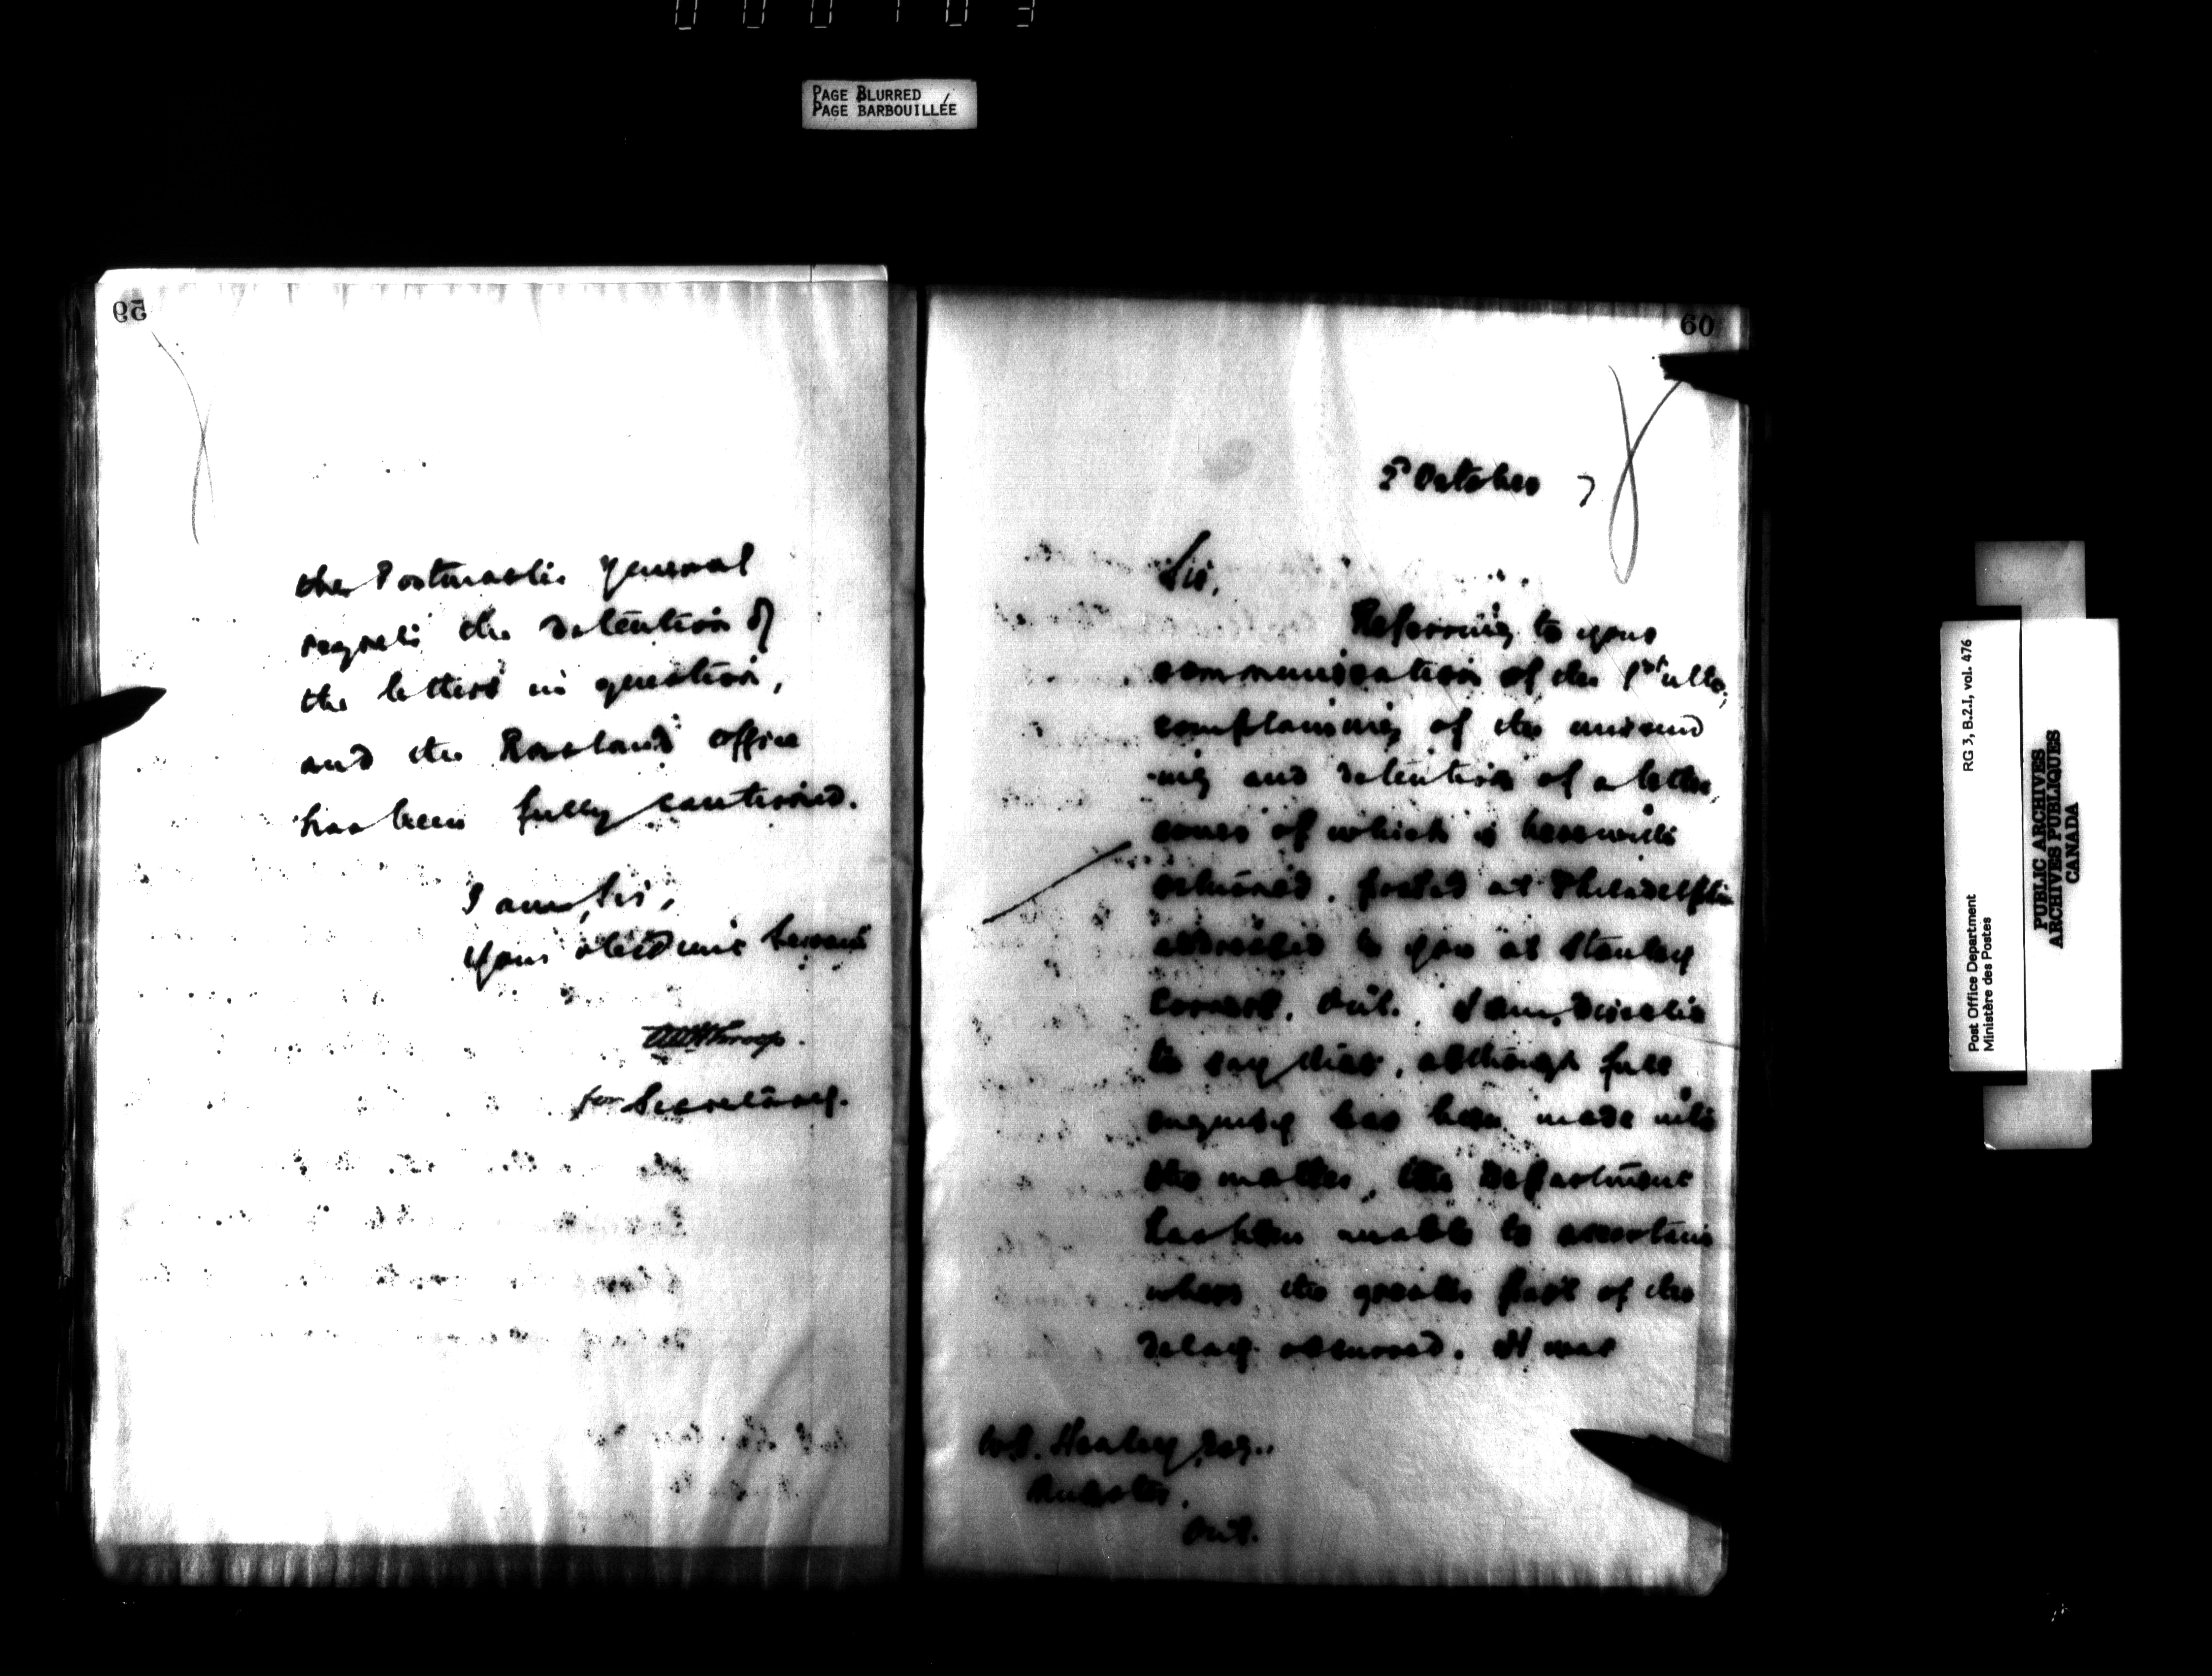 PAGE BLURRED
PAGE BARBOUILLÉE
59
the Postmaster General
regrets the detention of
the letters in question,
and the Rossland office
has been fully cautioned.
I am, Sir,
Your obedient Servant
for Secretary.
60
October 7
Sir,
Referring to your
communication of the 1st ulto,
complaining of the missend
-ing and detention of a letter,
cover of which is herewith
returned, posted at Philadelphia
addressed to you at Stanley
Corners, Ont., I am directed
to say that, although full
enquiry has been made into
the matter, the Department
has been unable to ascertain
where the greater part of the
delay occurred. It was
Healey, Esq.,
Ont.
RG 3, B.2.I, vol. 476
Post Office Department
Ministère des Postes
PUBLIC ARCHIVES
ARCHIVES PUBLIQUES
CANADA